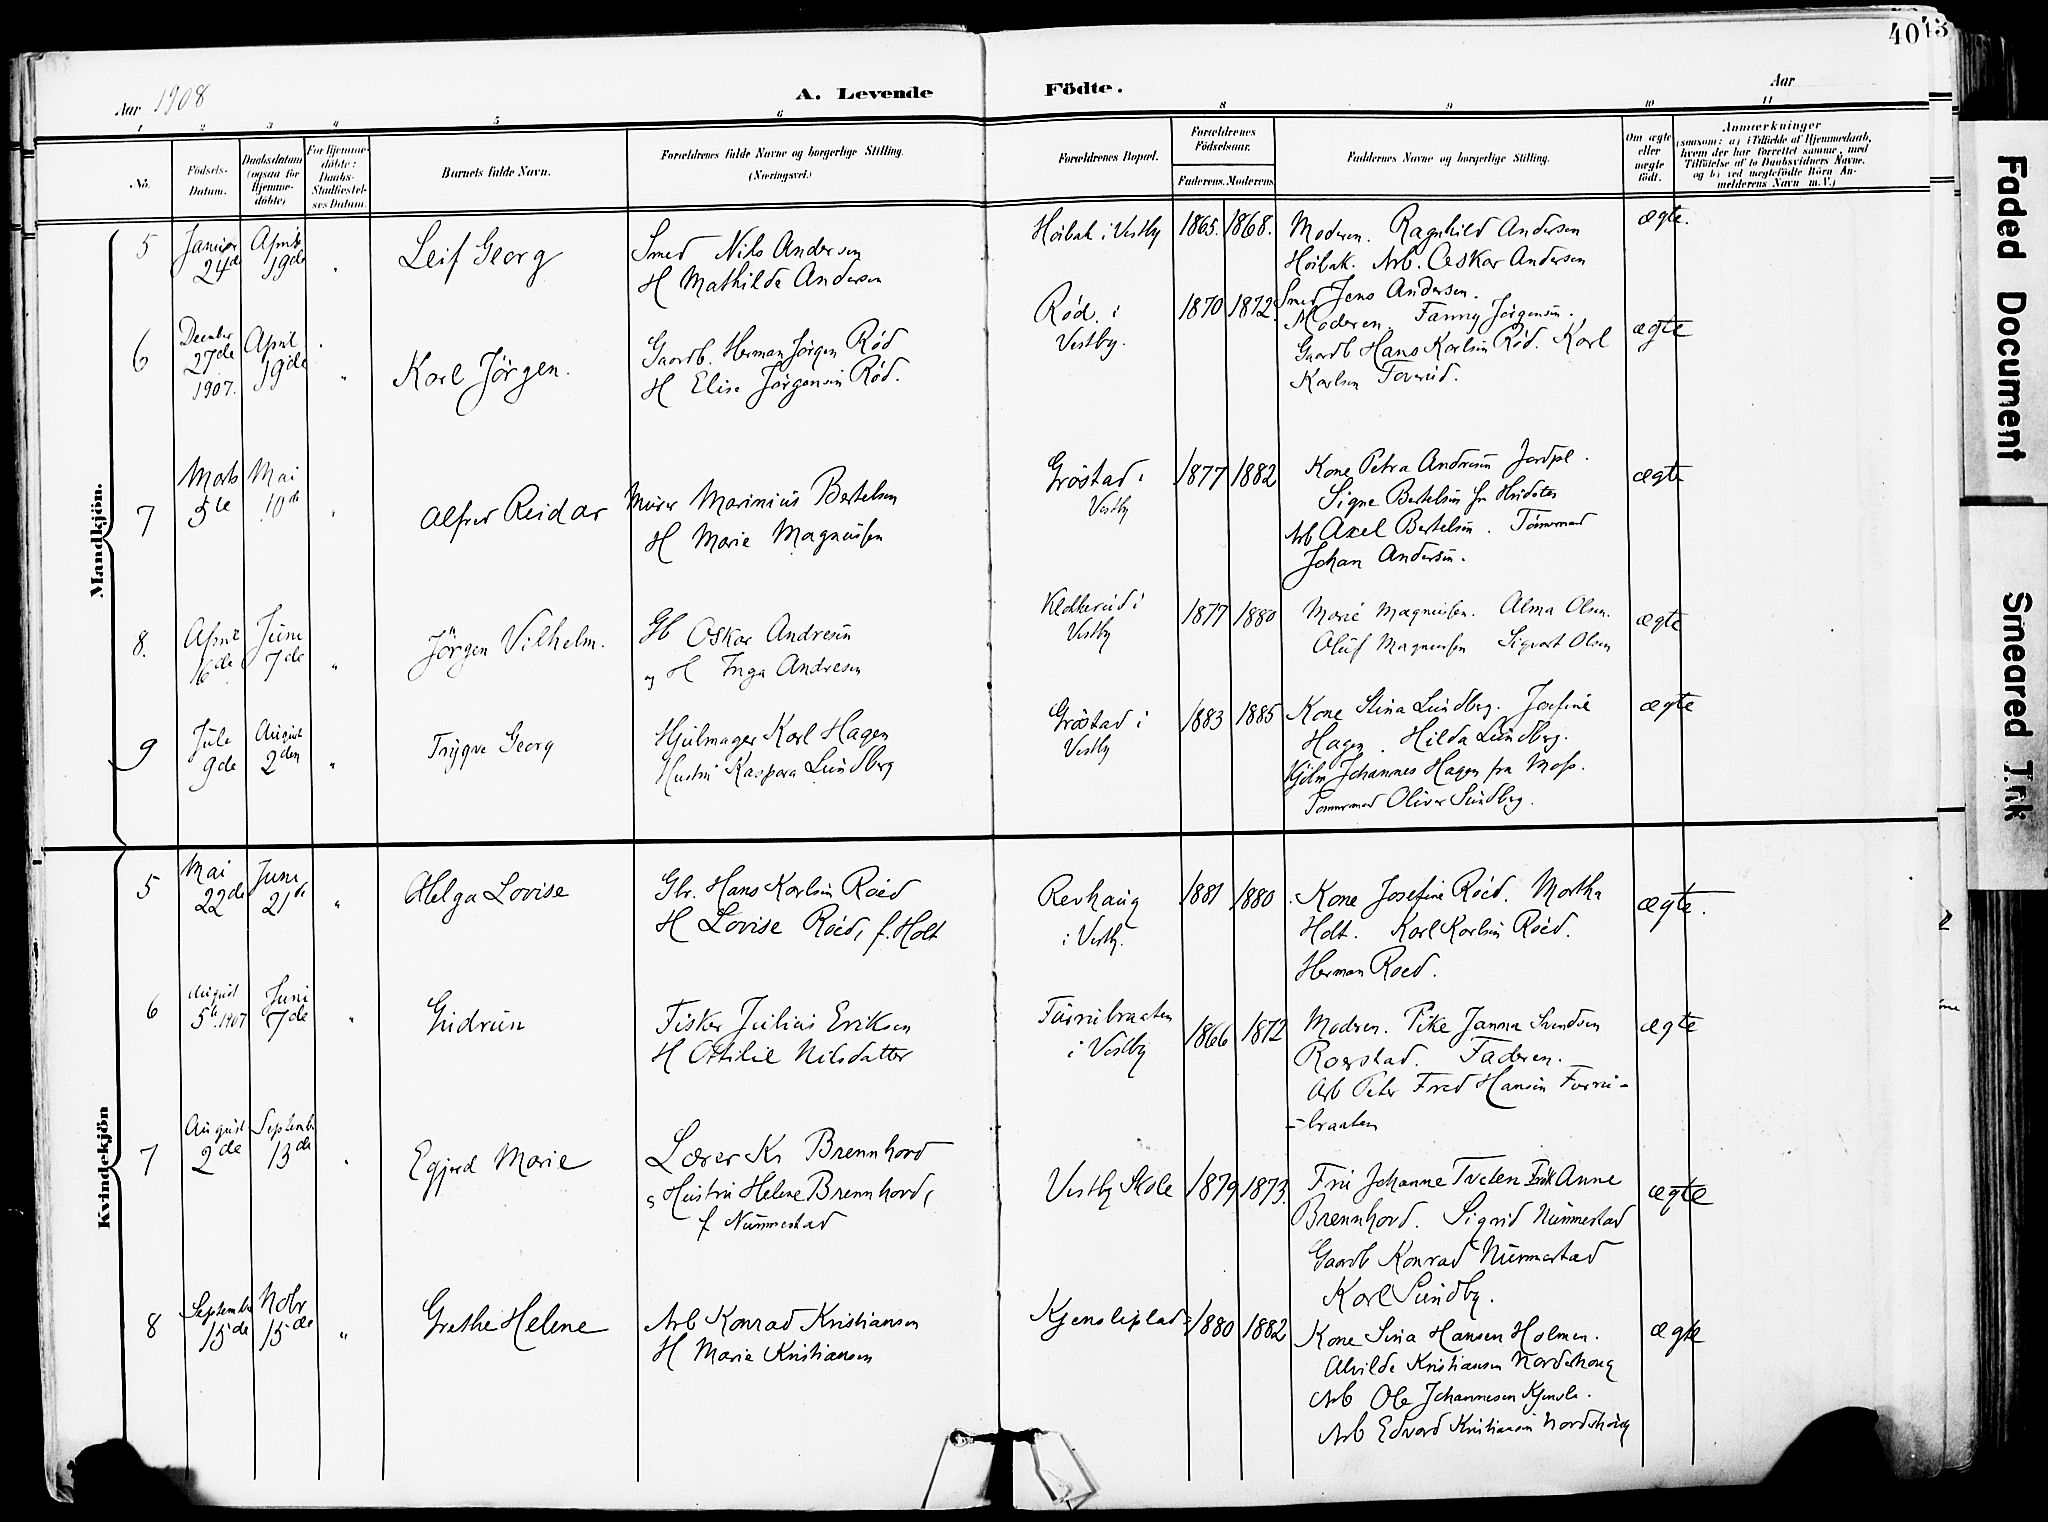 40 13
Aar 1908 A. Levende Födte. Aar
1 2 3 4 5 6 8 9 10 11
No. Födsels-Datum. Daabsdatum (ogsaa for Hjemme-döbte) For Hjemme-döbte: Daabs-Stadfæstel-ses Datum. Barnets fulde Navn. Forældrenes fulde Navne og borgerlige Stilling. (Næringsvei.) Forældrenes Bopæl. Forældrenes Födselsaar. Faderens. Moderens. Faddernes Navne og borgerlige Stilling. Om ægte eller uægte födt. Anmærkninger (saasom: a) i Tilfælde af Hjemmedaab, hvem der har forrettet samme, med Tilföielse af to Daabsvidners Navne. og b) ved uægtefödte Börn An-melderens Navn m. V.)
Mandkjön.
5 Januar 24de April 19de " Leif Georg
Smed Nils Andersen
H Mathilde Andersen
Hoibak i Vestby 1865. 1868.
Moderen. Ragnhild Andersen
Hoibak. Arb. Oskar Andersen
Smed Jens Andersen.
ægte.
6 December 27de 1907. April 19de " Karl Jörgen.
Gaardb. Herman Jörgen Röd
H Elise Jörgensen Röd.
Röd. i
Vestby.
1870 1872.
Moderen. Fanny Jörgensen.
Gaardb Hans Karlsen Röd. Karl
Karlsen Toverud.
ægte
7 Marts 5te Mai 10de " Alfred Reidar
Murer Marinius Bertelsen
H Marie Magnussen
Gröstad i
Vestby
1877 1882
Kone Petra Andresen Jordpl.
Signe Bertelsen fr Hvidsten
Arb Axel Bertelsen. Tömmermand
Johan Andersen.
ægte
8. April 16de Juni 7de " Jörgen Vilhelm.
Gb Oskar Andresen
og H Inga Andresen
Klokkerud i
Vestby
1877 1880
Marie Magnussen. Alma Olsen.
Oluf Magnussen Sigvart Olsen
ægte
9 Juli 9de August 2den " Trygve Georg
Hjulmager Karl Hagen
Hustru Kaspara Lundberg
Gröstad i
Vestby
1883 1885
Kone Stina Lundberg. Josefine
Hagen. Hilda Lundberg.
Hjulm Johannes Hagen fra Moss.
Tömmermand Oliver Lundberg.
ægte
Kvindekjön
5 Mai 22de Juni 21de " Helga Lovise
Gbr. Hans Karlsen Röed
H Lovise Röed, f. Holt
Revhaug
i Vestb.
1881 1880
Kone Josefine Röed. Martha
Holt. Karl Karlsen Röed.
Herman Roed.
ægte.
6 August 5te 1907 Juni 7de " Gudrun
Fisker Julius Eriksen
H Ottilie Nilsdatter
Furrubraaten
i Vestby
1866 1872
Moderen. Pike Janna Svendsen
Rogstad. Faderen.
Arb Peter Fred Hansen Furru-
-braaten
ægte
7 August 2de September 13de " Egjerd Marie
Lærer Kr Brennhovd
s Hustru Helene Brennhovd,
f Nummestad
Vestby Skole 1879 1873.
Fru Johanne Tveten Frk Anne
Brennhovd. Sigrid Nummestad
Gaardb Konrad Nummestad
Karl Sundby.
ægte
8 September 15de Nobr 15de " Grethe Helene
Arb Konrad Kristiansen
H Marie Kristiansen
Kjensliplads 1880 1882
Kone Sina Hansen Holmen.
Alvilde Kristiansen Nordshaug
Arb Ole Johannesen Kjensli.
Arb Edvard Kristiansen Nordshaug
ægte
Faded Document
Smeared T.rik